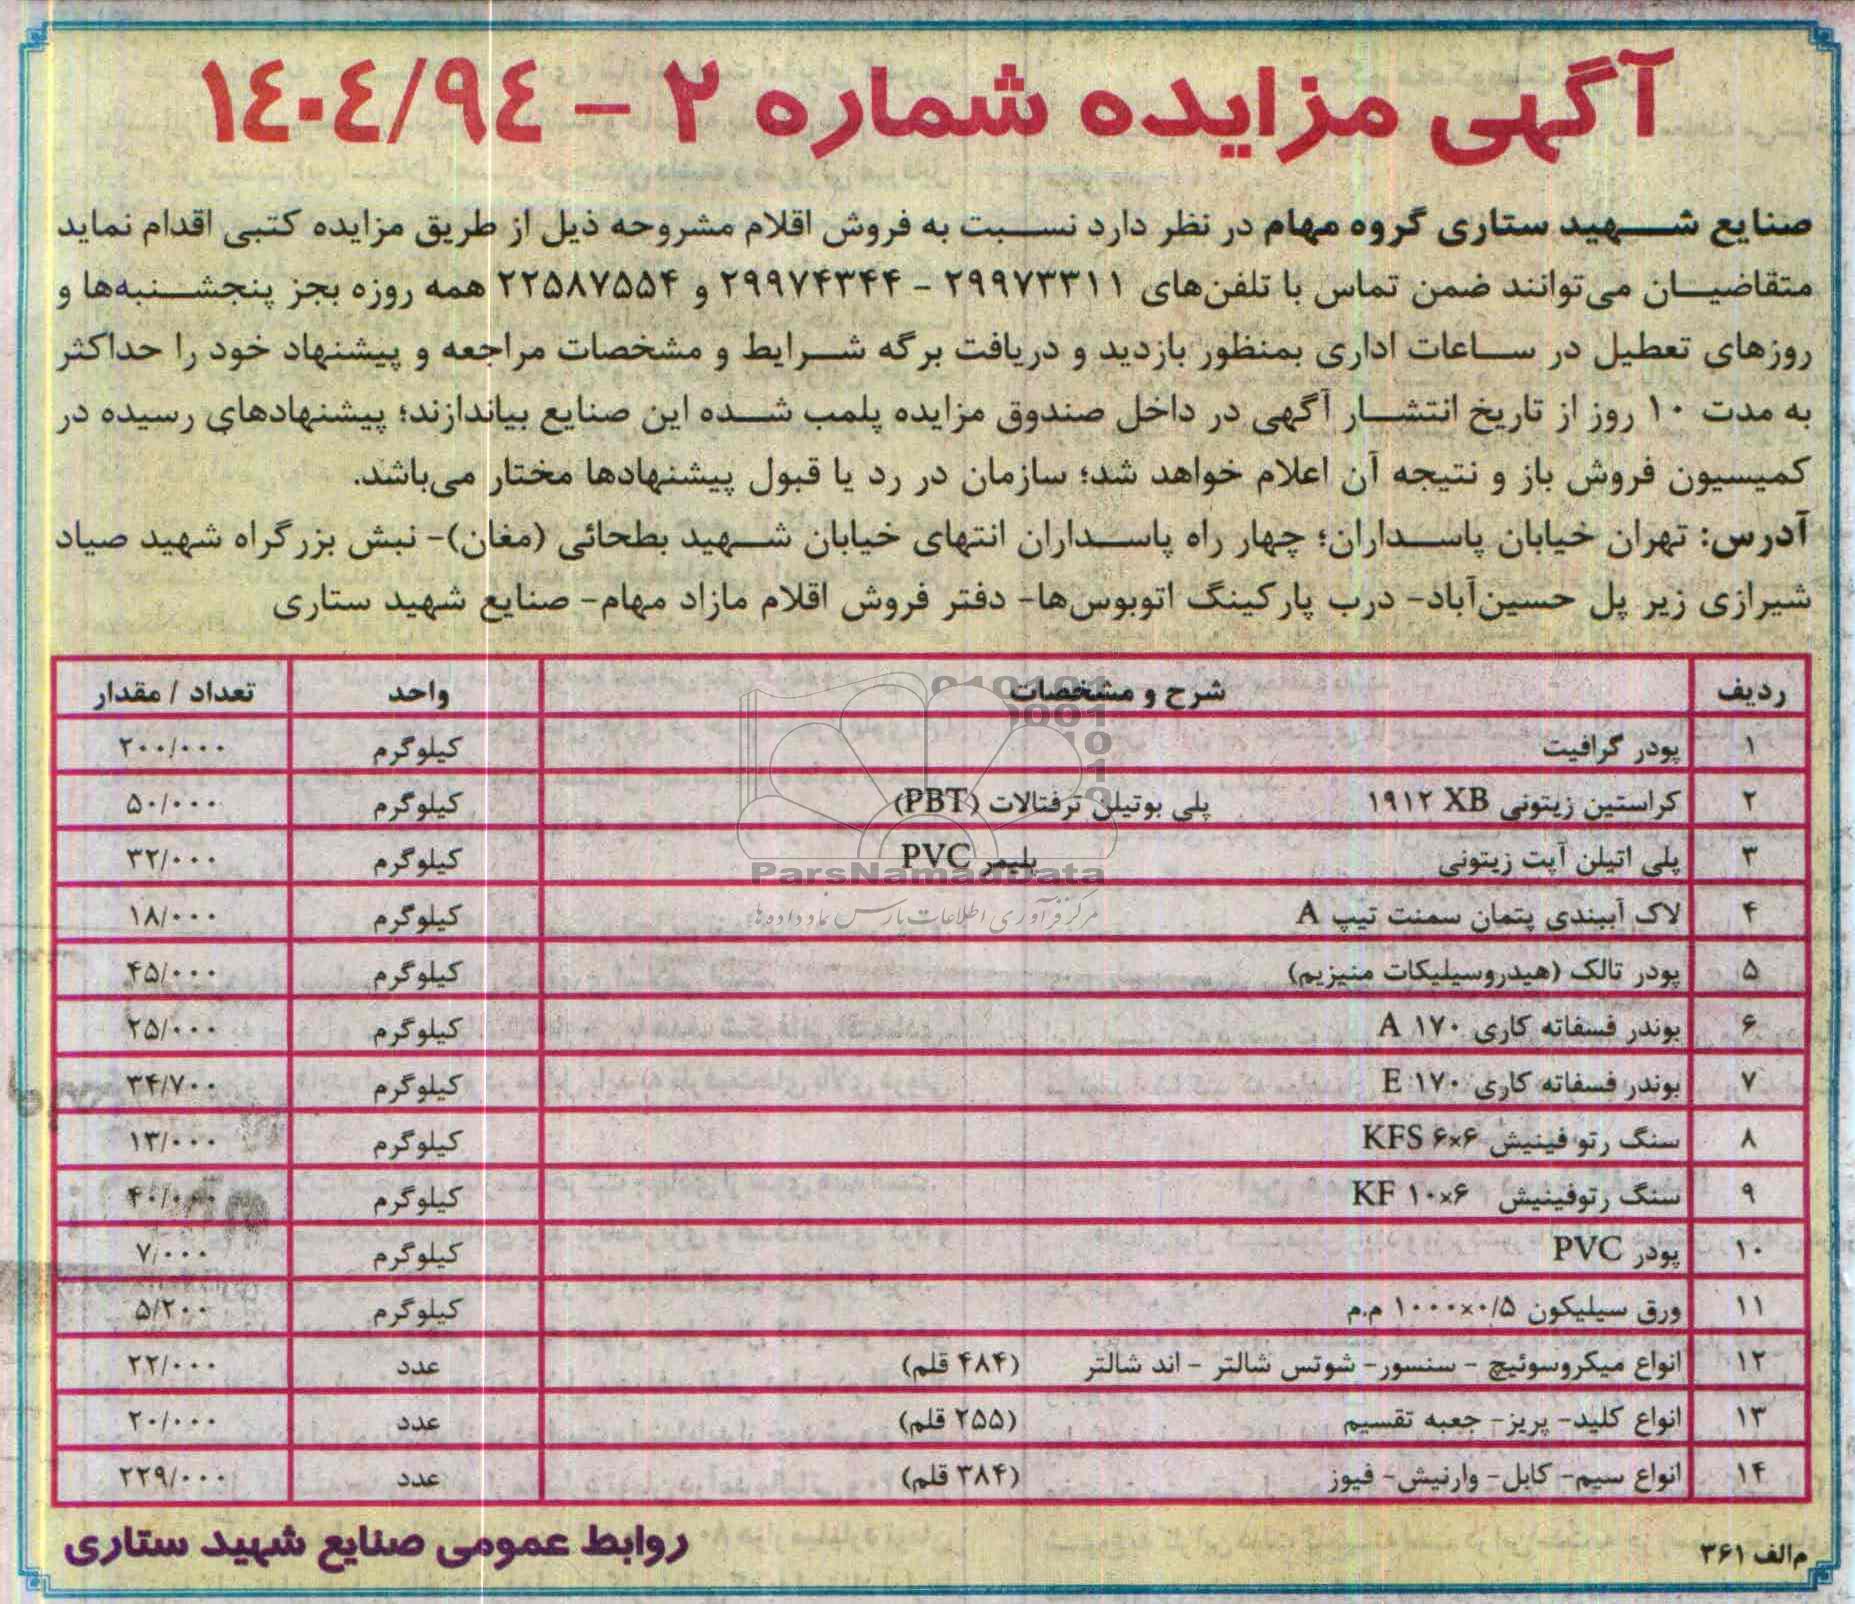 آگهی مزایده شماره ۲ - ۱۴۰۴/۹۴
صنایع شهید ستاری گروه مهام در نظر دارد نسبت به فروش اقلام مشروحه ذیل از طریق مزایده کتبی اقدام نماید
متقاضیان می‌توانند ضمن تماس با تلفن‌های ۲۹۹۷۳۳۱۱ - ۲۹۹۷۴۳۴۴ و ۲۲۵۸۷۵۵۴ همه روزه بجز پنجشنبه‌ها و
روزهای تعطیل در ساعات اداری بمنظور بازدید و دریافت برگه شرایط و مشخصات مراجعه و پیشنهاد خود را حداکثر
به مدت ۱۰ روز از تاریخ انتشار آگهی در داخل صندوق مزایده پلمب شده این صنایع بیاندازند؛ پیشنهادهای رسیده در
کمیسیون فروش باز و نتیجه آن اعلام خواهد شد؛ سازمان در رد یا قبول پیشنهادها مختار می‌باشد.
آدرس: تهران خیابان پاسداران؛ چهار راه پاسداران انتهای خیابان شهید بطحائی (مغان)- نبش بزرگراه شهید صیاد
شیرازی زیر پل حسین‌آباد- درب پارکینگ اتوبوس‌ها- دفتر فروش اقلام مازاد مهام- صنایع شهید ستاری
ردیف شرح و مشخصات واحد تعداد / مقدار
۱ پودر گرافیت کیلوگرم ۲۰۰/۰۰۰
۲ کراستین زیتونی ۱۹۱۲ XB پلی بوتیلن ترفتالات (PBT) کیلوگرم ۵۰/۰۰۰
۳ پلی اتیلن آپت زیتونی پلیمر PVC کیلوگرم ۳۲/۰۰۰
۴ لاک آببندی پتمان سمنت تیپ A کیلوگرم ۱۸/۰۰۰
۵ پودر تالک (هیدروسیلیکات منیزیم) کیلوگرم ۴۵/۰۰۰
۶ بوندر فسفاته کاری A ۱۷۰ کیلوگرم ۲۵/۰۰۰
۷ بوندر فسفاته کاری E ۱۷۰ کیلوگرم ۳۴/۷۰۰
۸ سنگ رتو فینیش KFS ۶×۶ کیلوگرم ۱۳/۰۰۰
۹ سنگ رتوفینیش KF ۱۰×۶ کیلوگرم ۴۰/۰۰۰
۱۰ پودر PVC کیلوگرم ۷/۰۰۰
۱۱ ورق سیلیکون ۱۰۰۰×۰/۵ م.م کیلوگرم ۵/۲۰۰
۱۲ انواع میکروسوئیچ - سنسور- شوتس شالتر - اند شالتر (۴۸۴ قلم) عدد ۲۲/۰۰۰
۱۳ انواع کلید- پریز- جعبه تقسیم (۲۵۵ قلم) عدد ۲۰/۰۰۰
۱۴ انواع سیم- کابل- وارنیش- فیوز (۳۸۴ قلم) عدد ۲۲۹/۰۰۰
م‌الف ۳۶۱ روابط عمومی صنایع شهید ستاری
ParsNamadData
مرکز فرآوری اطلاعات پارس نماد داده ها